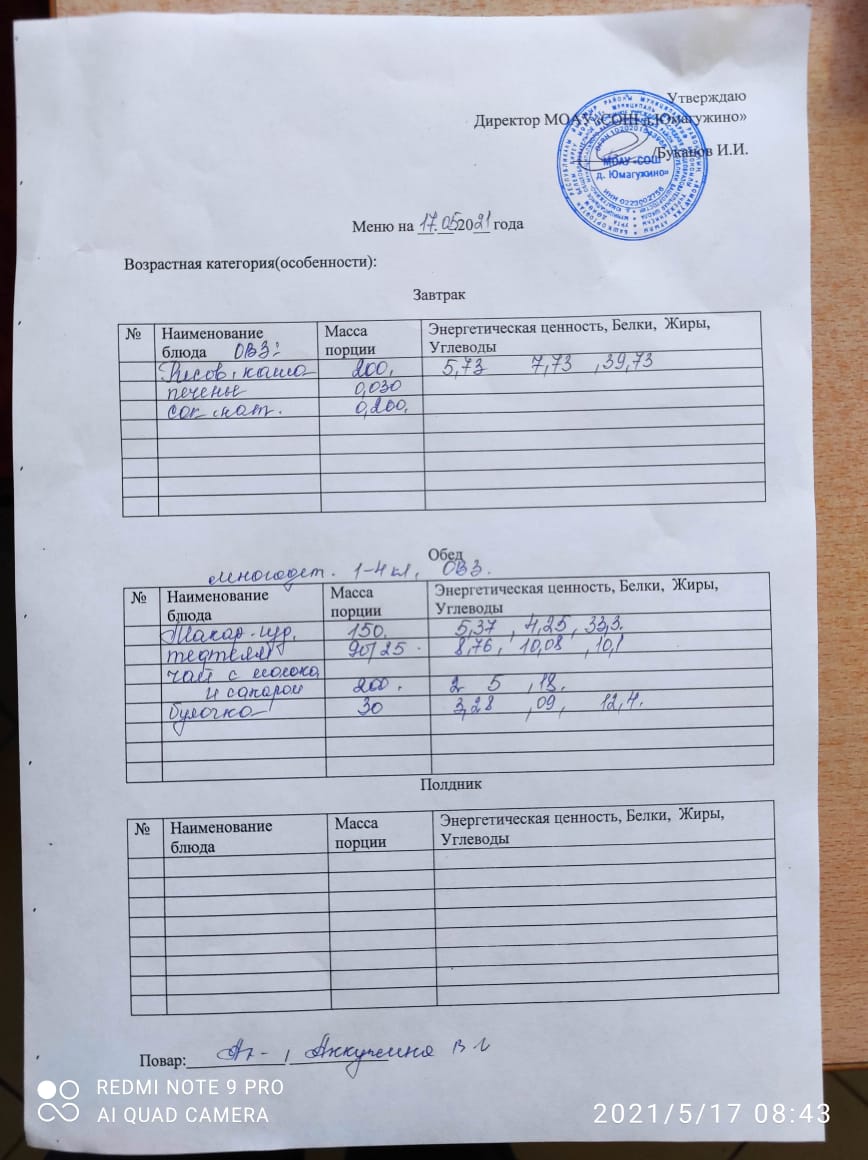 Утверждаю
Директор МОАУ «СОШ д.Юмагужино»
/Буканов И.И.
МОАУ «СОШ
д. Юмагужино»
ИНН 0223002756
Меню на 17.05 2021 года
Возрастная категория(особенности):
Завтрак
№ Наименование блюда ОВЗ: Масса порции Энергетическая ценность, Белки, Жиры, Углеводы
Рисов. каша 200, 5,73 7,73 ,39,73
печенье 0,030
сок нат. 0,200,
Обед
многодет. 1-4 кл, ОВЗ.
№ Наименование блюда Масса порции Энергетическая ценность, Белки, Жиры, Углеводы
Макар. изд. 150. 5,37 , 4,25, 33,3.
тефтели 90/25. 8,76, 10,08 ,10,1
чай с молоко
и сахаром 200. 2 5 ,18.
булочка 30 3,28 ,09, 12,4.
Полдник
№ Наименование блюда Масса порции Энергетическая ценность, Белки, Жиры, Углеводы
Повар: / Аккужина В
REDMI NOTE 9 PRO
AI QUAD CAMERA
2021/5/17 08:43